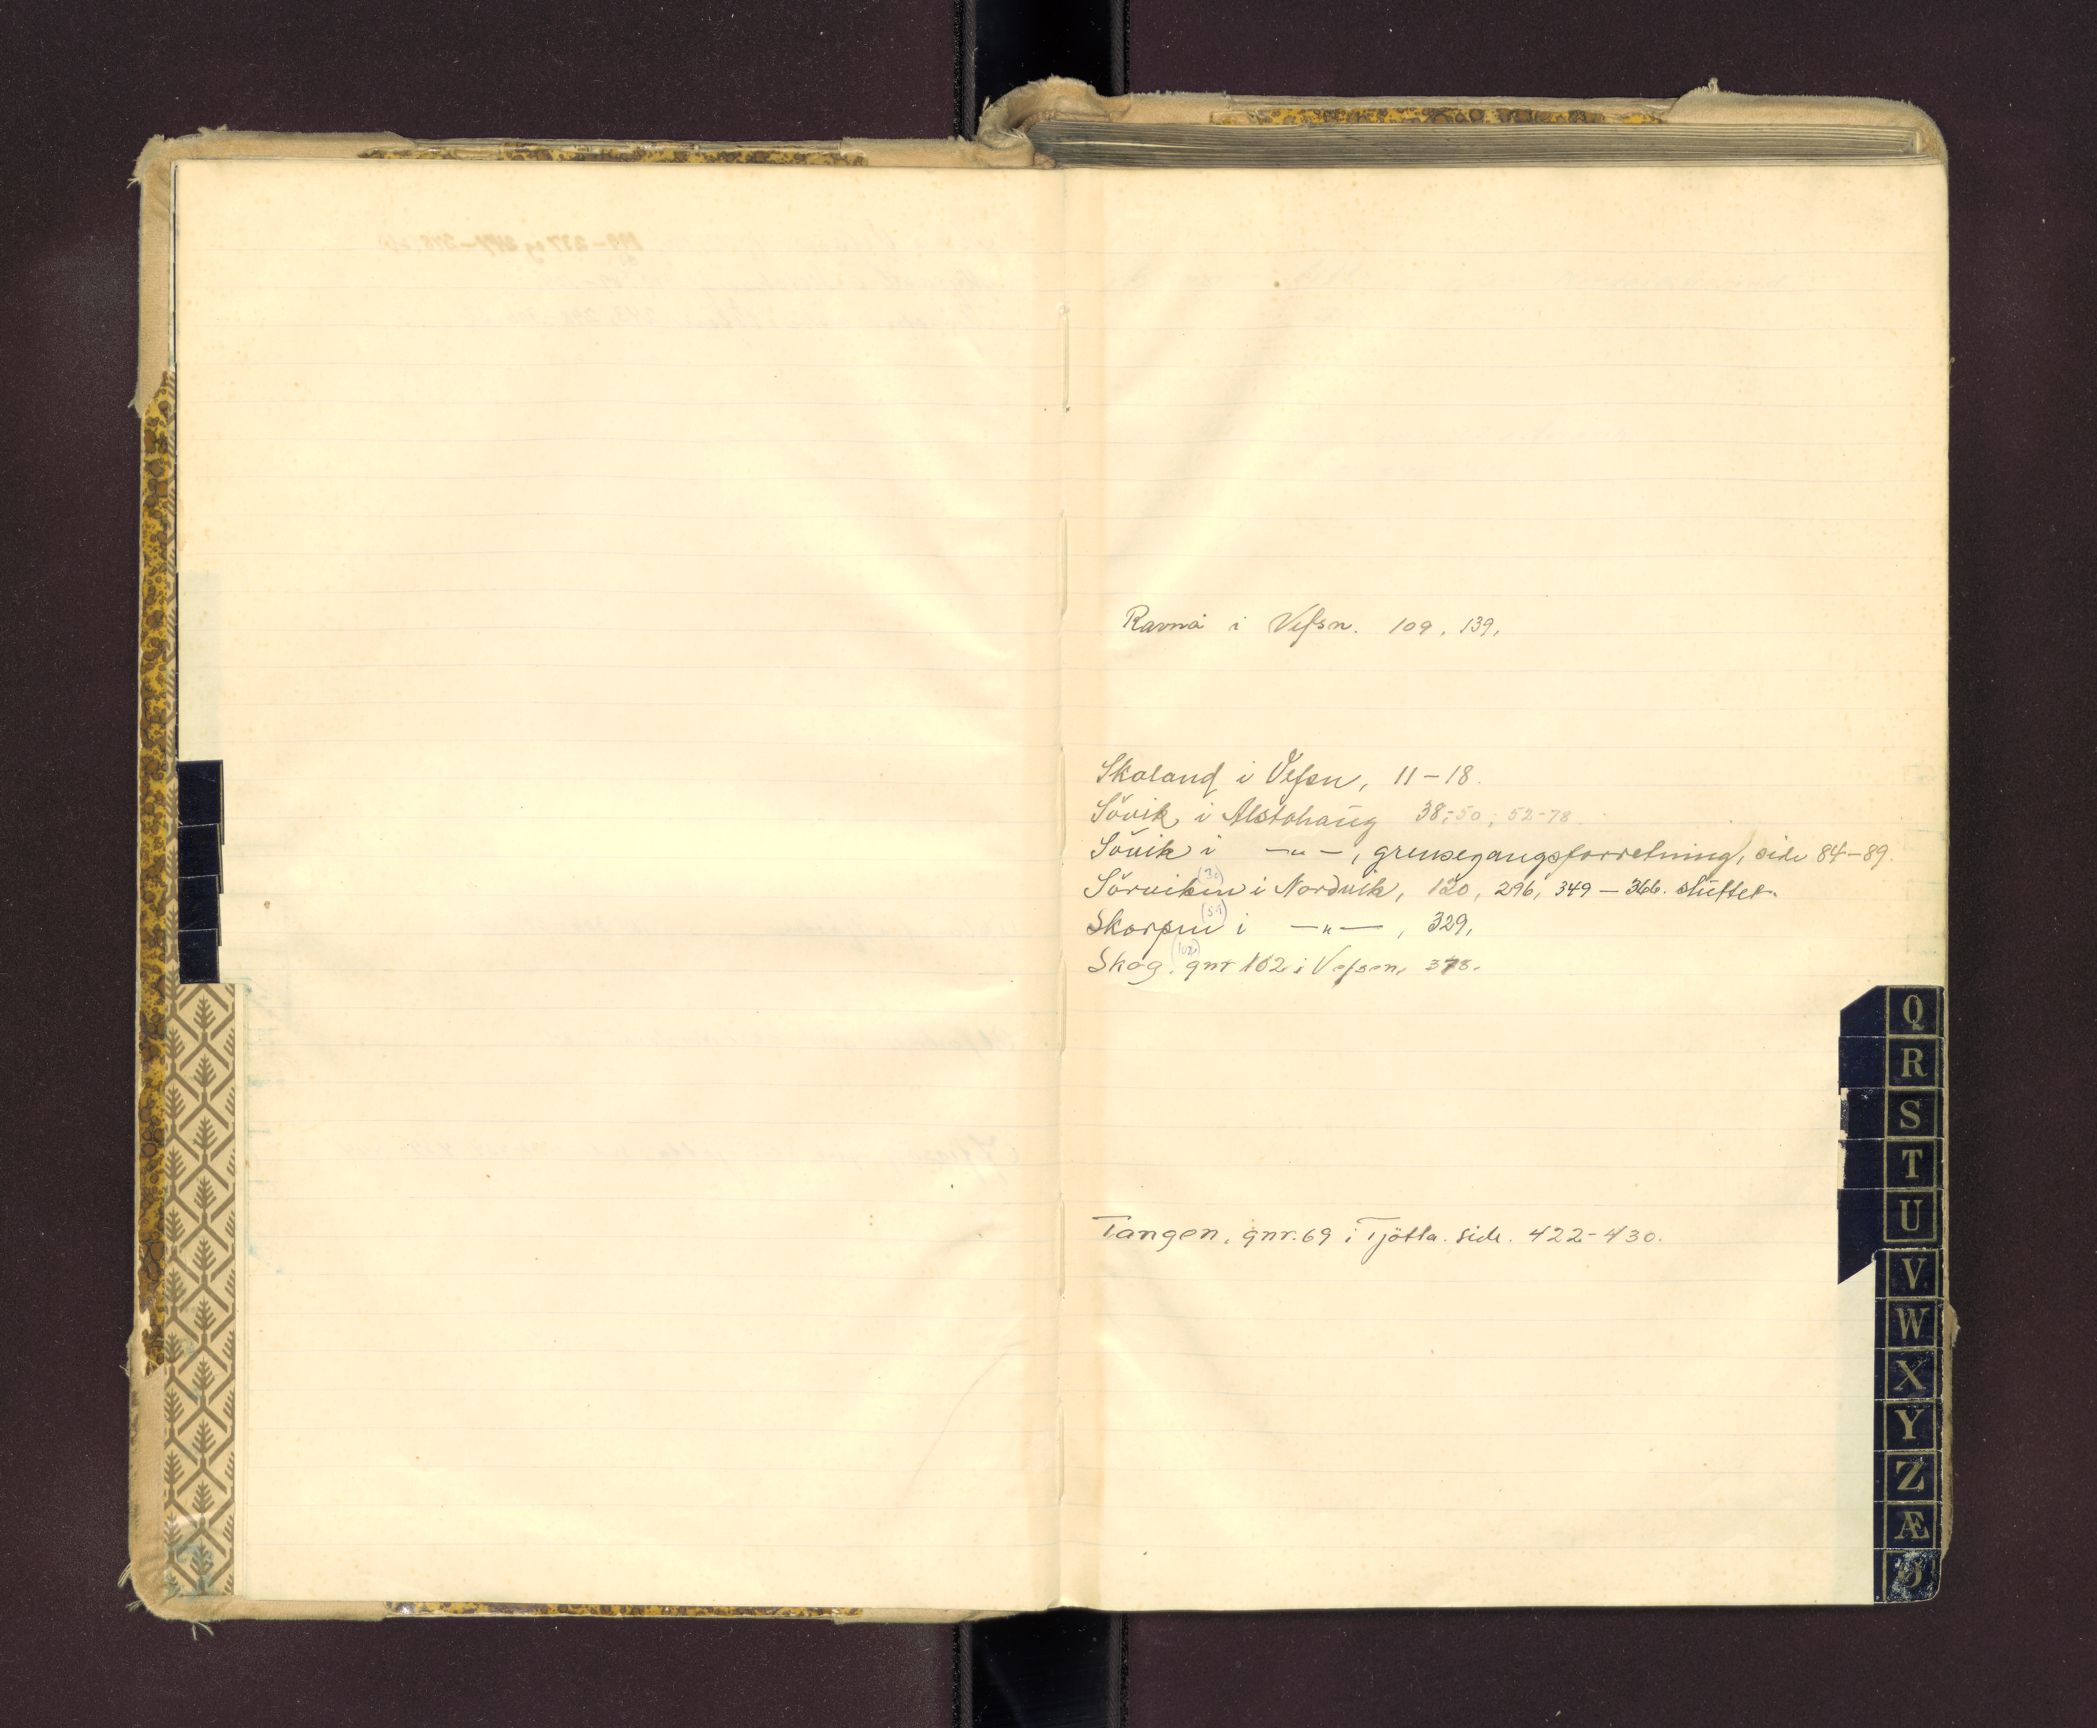 Ravnå i Vefsn. 109, 139,
Skaland i Vefsn, 11–18.
Sövik i Alstahaug 38,-50, 52-78.
Sövik i —"—, grensegangsforretning, side 84–89.
Sörviken (30) i Nordvik, 120, 296, 349–366. sluttet.
Skorpen (54) i —"—, 329,
Skog, (102) gnr 102 i Vefsn, 378.
Tangen, gnr. 69 i Tjötta. side. 422-430.
Q
R
S
T
U
V
W
X
Y
Z
Æ
Ø